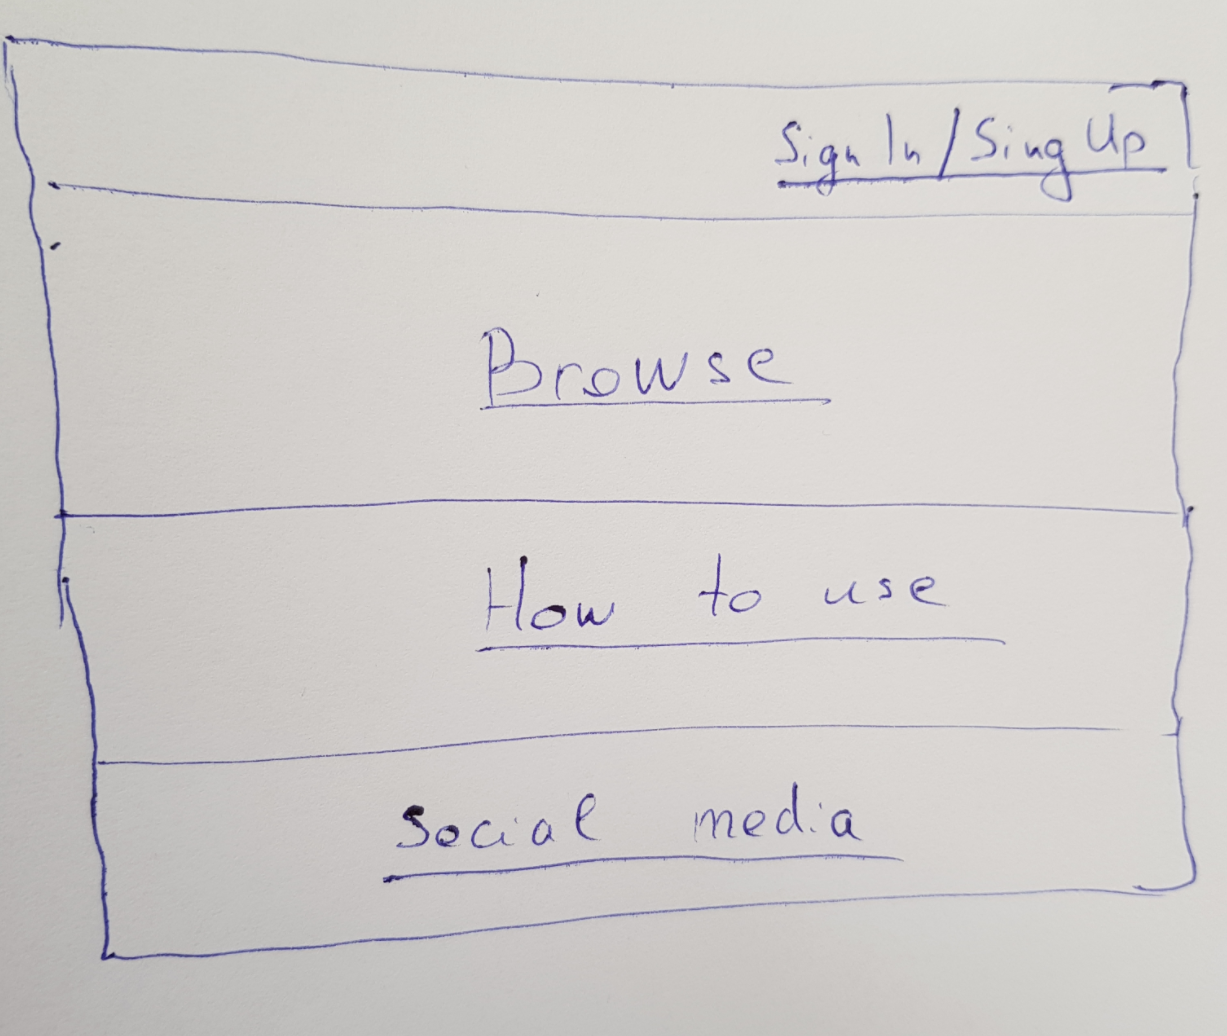 Sign In / Sing Up
Browse
How to use
social media